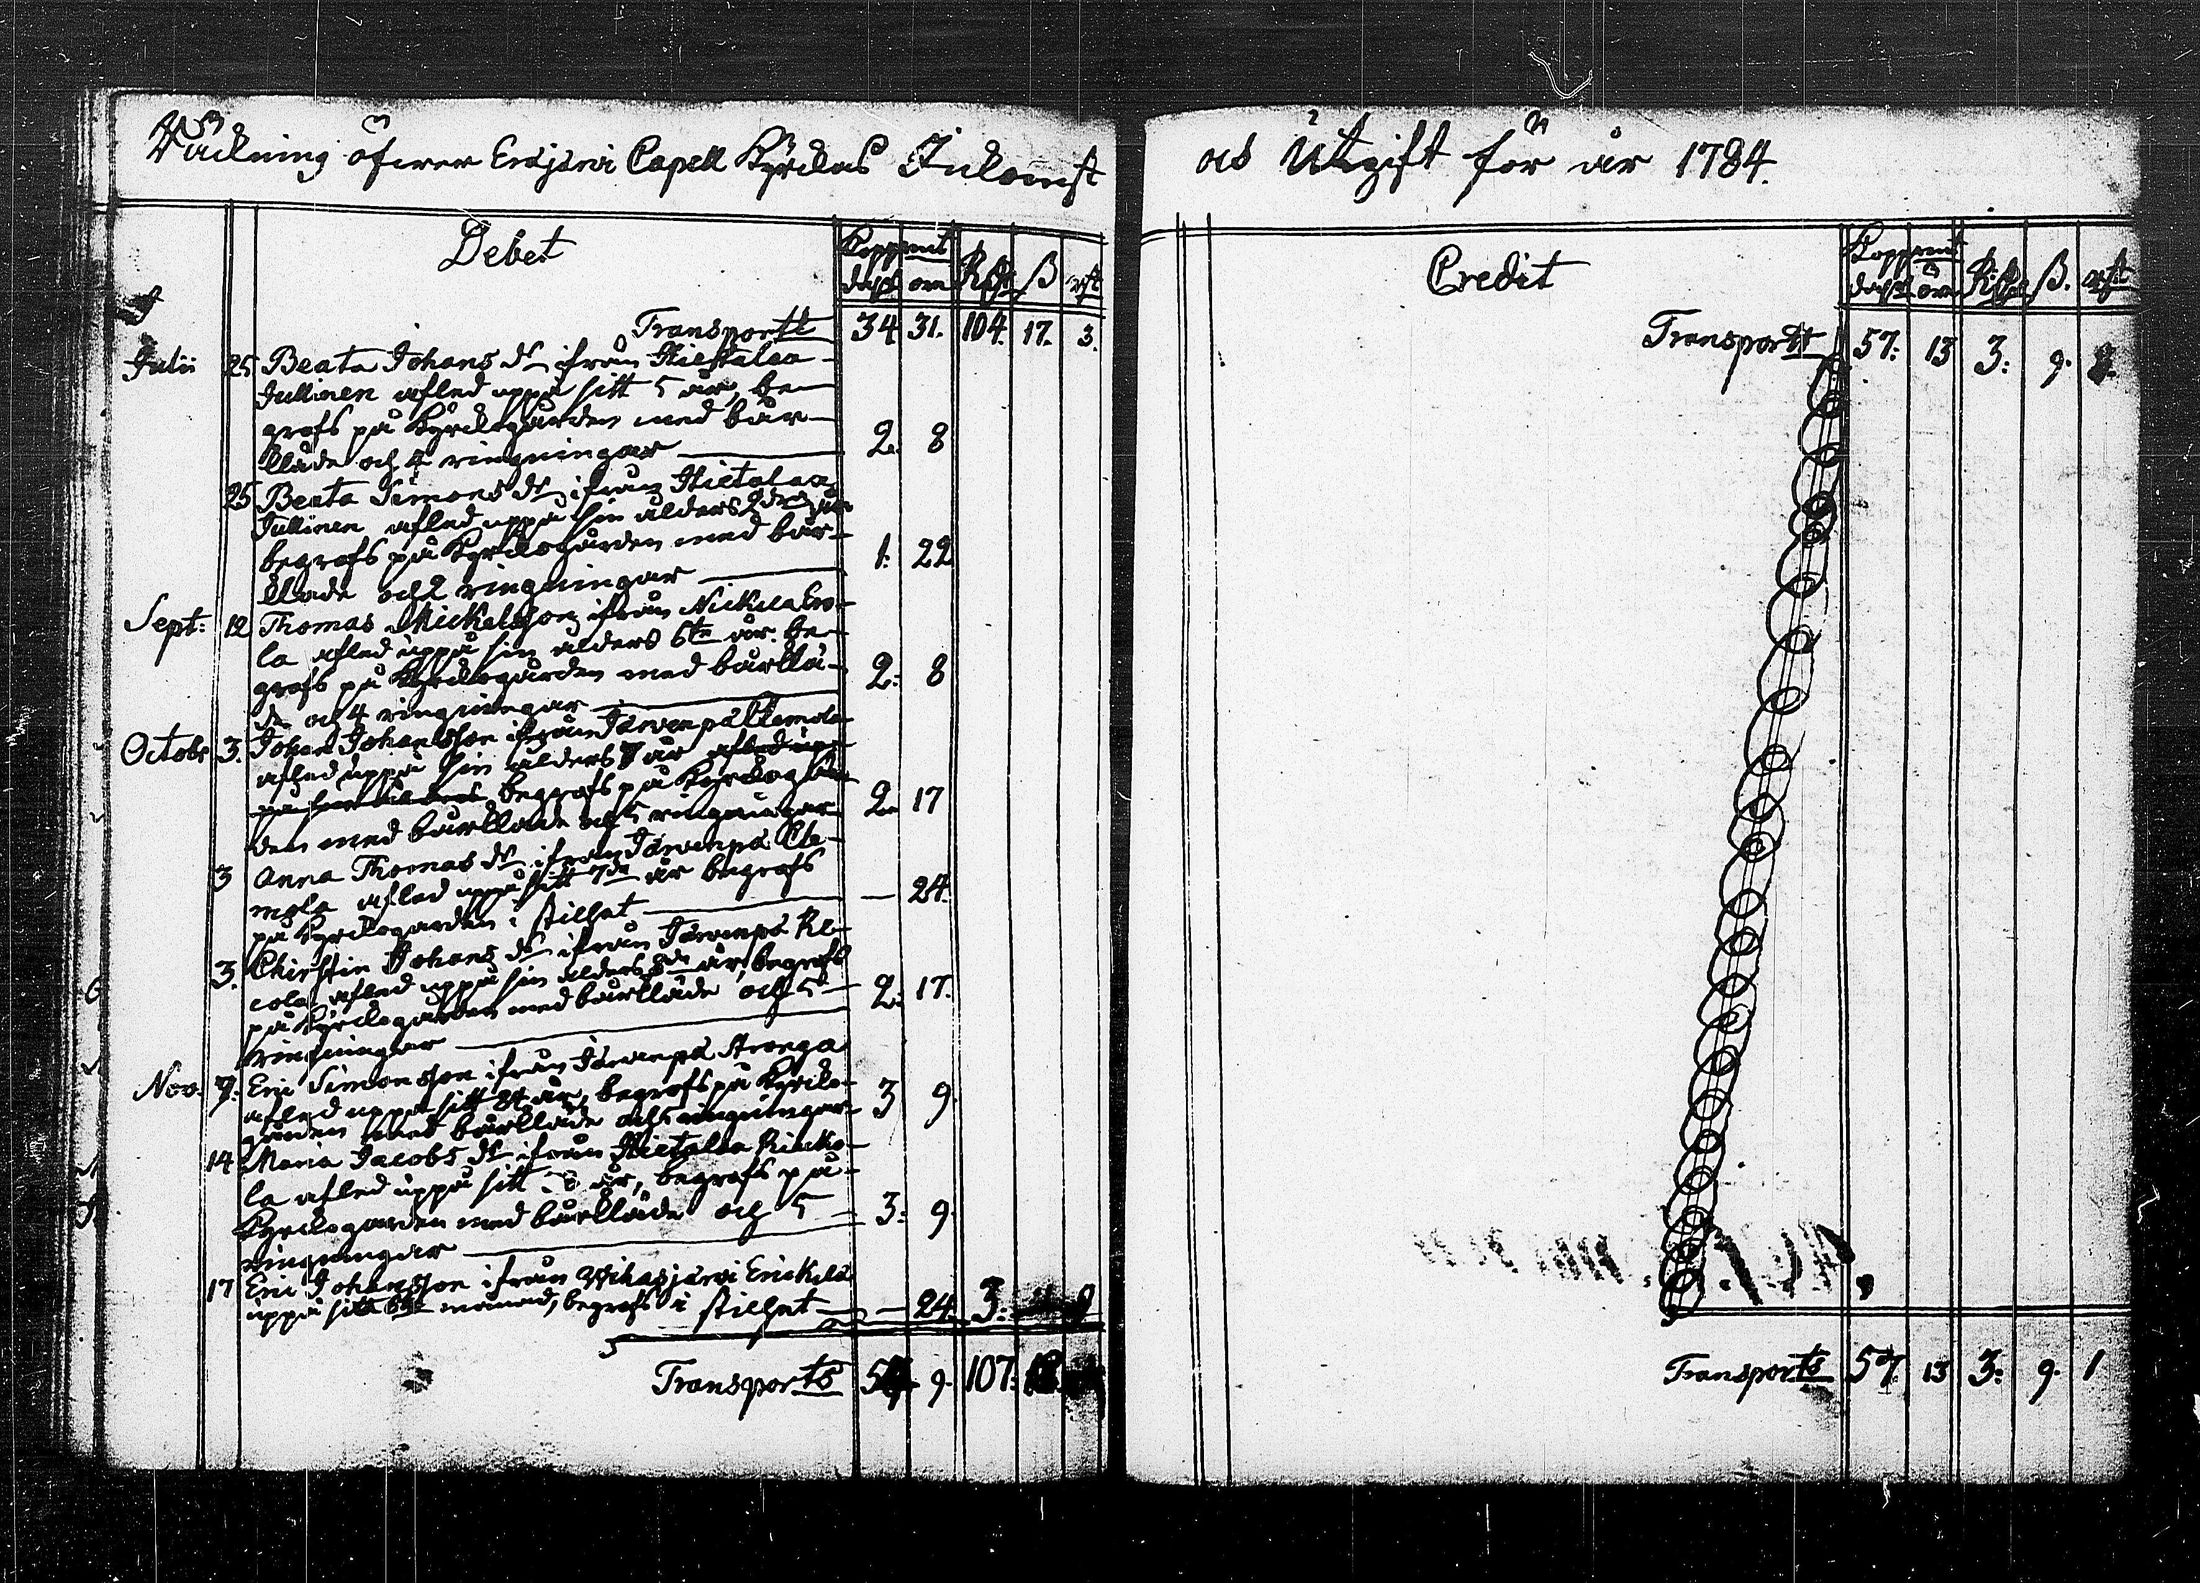 Räckning öfwer Eräjärvi Capell Kyrckas Inkomst
Debet
Koppmt
dalr öre Rdr ß rst
Transport 34 31. 104. 17. 3.
Julii 25 Beata Johans dr ifrån Hietalaa
Jullinen afled uppå sitt 5 år, be-
grofs på Kyrckogården med bår-
kläde och 4 ringningar 2. 8
25 Beata Simons dr ifrån Hietalaa
Jullinen afled uppå sin ålders 2dra år
begrofs på Kyrckogården med bår-
kläde och 2 ringningar 1. 22
Sept: 12 Thomas Mickelsson ifrån
la afled uppå sin ålders 6te år. be-
grofs på Kyrckogården med bårklä-
de och 4 ringningar 2: 8
Octobr 3. Johan Johansson ifrån Järvenpä Clemola
afled uppå sin ålders år
begrofs på Kyrckogår-
den med bårkläde och 5 ringningar 2. 17
3 Anna Thomas dr ifrån Järvenpä Cle-
mola afled uppå sitt 7de år begrofs
på Kyrckogården i stillhet — 24.
3. Christin Johans dr ifrån Järvenpä
cola, afled uppå sin ålders år, begrofs
på Kyrckogården med bårkläde och 5 2: 17.
ringningar
Nov. 7. Eric Simonsson ifrån Järvenpä Aronga
afled uppå sitt år, begrofs på Kyrcko-
gården med bårkläde och 5 ringningar 3 9
14 Maria Jacobs dr ifrån Hietalaa
la afled uppå sitt år, begrofs på
Kyrckogården med bårkläde och 5 3: 9.
ringningar
17 Eric Johansson ifrån Vihasjärvi Erickilä
uppå sitt månad, begrofs i stillhet — 24. 3:
Transporto 9. 107:
och Utgift för år 1784.
Credit
Koppmt
dalr öre Rdr ß. rst
Transport 57: 13 3: 9.
Transporto 57. 13 3: 9. 1